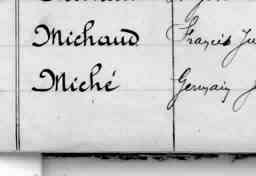 Michaud Francis
Miché Germain J